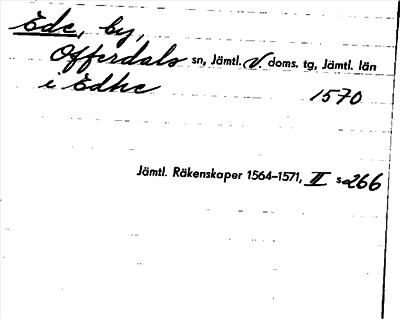 Ede, by,
Offerdals sn, Jämtl. V doms. tg, Jämtl. län
i Edhe 1570
Jämtl. Räkenskaper 1564-1571, II s 266